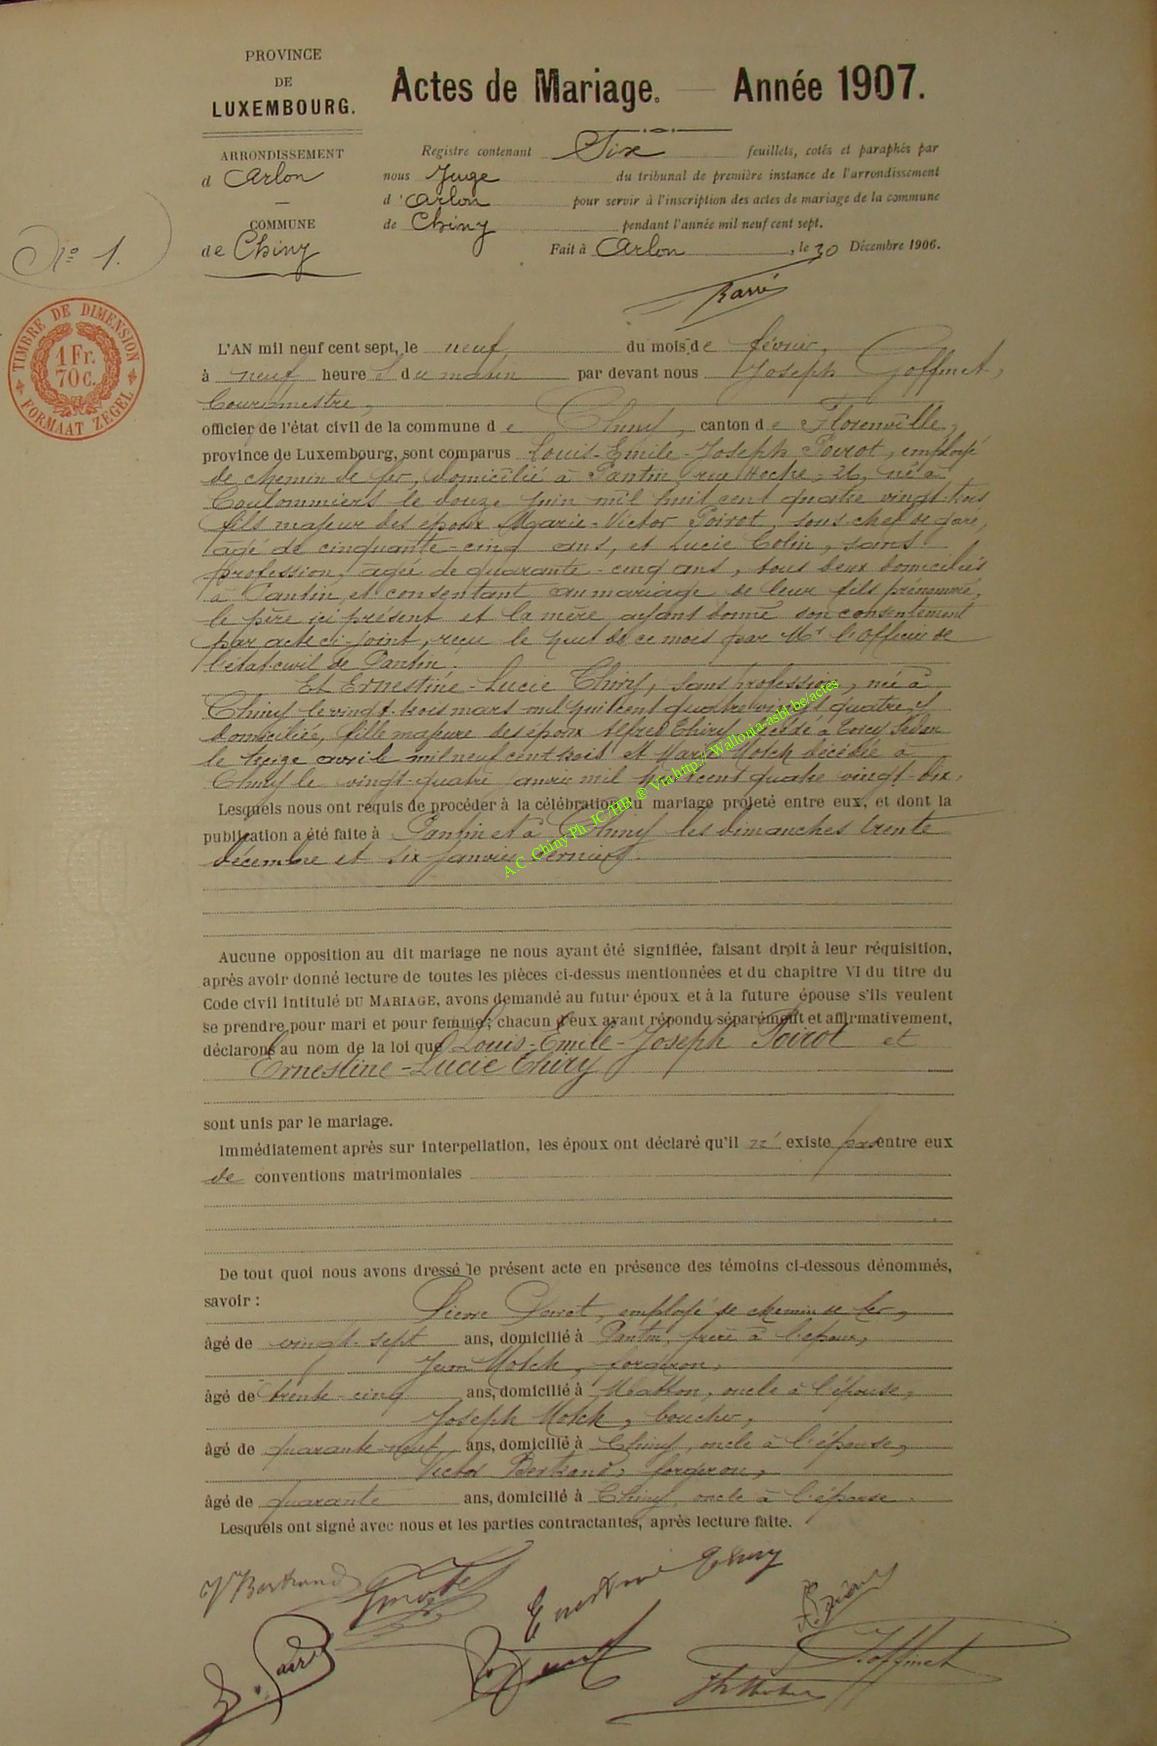 PROVINCE
DE
LUXEMBOURG.
ARRONDISSEMENT
d Arlon
COMMUNE
de Chiny
No 1.
TIMBRE DE DIMENSION
1 Fr.
70 c.
FORMAAT ZEGEL
Actes de Mariage. — Année 1907.
Registre contenant Six feuillets, cotés et paraphés par
nous Juge du tribunal de première instance de l'arrondissement
d'Arlon pour servir à l'inscription des actes de mariage de la commune
de Chiny pendant l'année mil neuf cent sept.
Fait à Arlon, le 30 Décembre 1906.
L'AN mil neuf cent sept, le neuf du mois de février,
à neuf heures du matin par devant nous Joseph Goffinet,
Bourgmestre,
officier de l'état civil de la commune de Chiny, canton de Florenville,
province de Luxembourg, sont comparus Louis-Emile-Joseph Poirot, employé
de chemin de fer, domicilié à Pantin, rue Hoche, 26, né à
Coulommiers le douze juin mil huit cent quatre vingt trois
fils majeur des époux Marie-Victor Poirot, sous-chef de gare,
âgé de cinquante-cinq ans, et Lucie Colin, sans
profession, âgée de quarante-cinq ans, tous deux domiciliés
à Pantin et consentant au mariage de leur fils prénommé,
le père ici présent et la mère ayant donné son consentement
par acte ci-joint, reçu le huit de ce mois par Mr l'officier de
l'état civil de Pantin.
Et Ernestine-Lucie Thiry, sans profession, née à
Chiny le vingt-trois mars mil huit cent quatre vingt quatre, y
domiciliée, fille majeure des époux Alfred Thiry décédé à Torcy Sedan
le treize avril mil neuf cent trois et Marie Motch décédée à
Chiny le vingt-quatre janvier mil huit cent quatre vingt-dix.
Lesquels nous ont requis de procéder à la célébration du mariage projeté entre eux, et dont la
publication a été faite à Pantin et à Chiny les dimanches trente
décembre et six janvier derniers.
A.C. Chiny Ph JC /HB ® Via http:// Wallonia-asbl.be/actes
Aucune opposition au dit mariage ne nous ayant été signifiée, faisant droit à leur réquisition,
après avoir donné lecture de toutes les pièces ci-dessus mentionnées et du chapitre VI du titre du
Code civil intitulé DU MARIAGE, avons demandé au futur époux et à la future épouse s'ils veulent
se prendre pour mari et pour femme; chacun d'eux ayant répondu séparément et affirmativement,
déclarons au nom de la loi que Louis-Emile-Joseph Poirot et
Ernestine-Lucie Thiry
sont unis par le mariage.
Immédiatement après sur interpellation, les époux ont déclaré qu'il n' existe pas entre eux
de conventions matrimoniales
De tout quoi nous avons dressé le présent acte en présence des témoins ci-dessous dénommés,
savoir :
Pierre Poirot, employé de chemin de fer,
âgé de vingt-sept ans, domicilié à Pantin, frère à l'époux,
Jean Motch, forgeron,
âgé de trente-cinq ans, domicilié à Matton, oncle à l'épouse,
Joseph Motch, boucher,
âgé de quarante-neuf ans, domicilié à Chiny, oncle à l'épouse,
Victor Bertrand, forgeron,
âgé de quarante ans, domicilié à Chiny, oncle à l'épouse.
Lesquels ont signé avec nous et les parties contractantes, après lecture faite.
V Bertrand
Ernestine Thiry
J. Goffinet